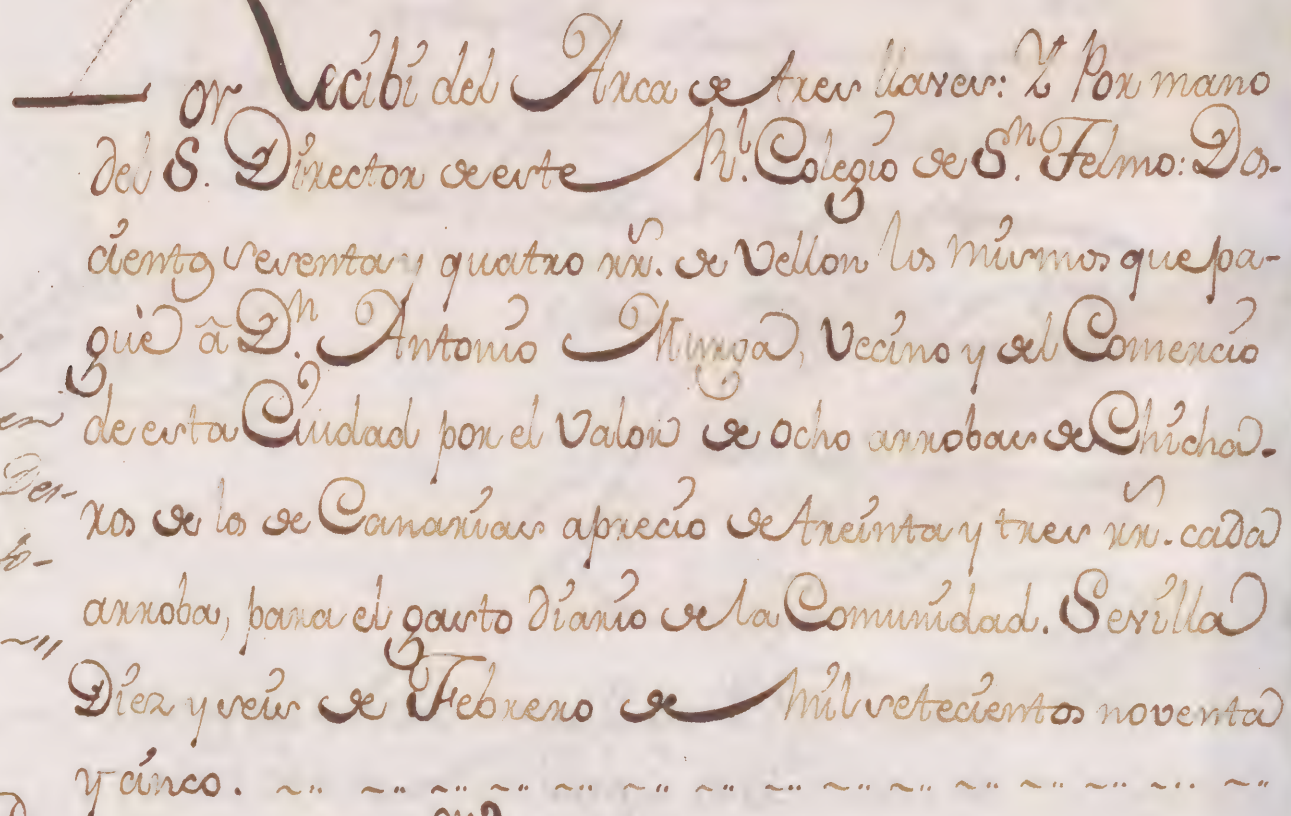 or Recibi del Arca de tres llaves: Y Por mano
del S. Director de este Rl. Colegio de Sn. Telmo: Dos-
ciento sesenta y quatro rr. de Vellon los mismos que pa-
guè â Dn. Antonio Murga, Vecino y del Comercio
de esta Ciudad por el Valor de ocho arrobas de Chicha-
rros de los de Canarias a precio de treinta y tres rr. cada
arroba, para el gasto diario de la Comunidad. Sevilla
Diez y seis de Febrero de Mil setecientos noventa
y cinco.